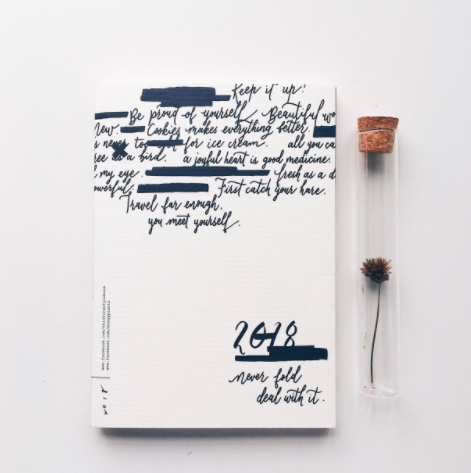 Keep it up!
Be proud of yourself. Beautiful
new. Cookies makes everything better.
for ice cream. all you ca
ree as a bird. a joyful heart is good medicine.
my eye fresh as a d
owerful. First catch your hare.
Travel far enough,
you meet yourself.
2018
never fold
deal with it.
2018